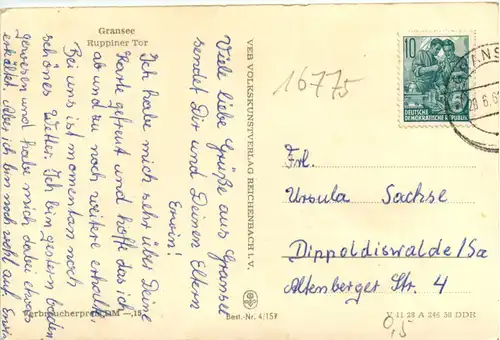 Gransee
Ruppiner Tor
Viele liebe Grüße aus Gransee
sendet Dir und Deinen Eltern
Erwin!
Ich habe mich sehr über Deine
Karte gefreut und hoffe das ich
ab und zu noch weitere erhalte.
Bei uns ist momentan noch
schönes Wetter. Ich bin gestern baden
gewesen und habe mich dabei etwas
erkältet. Aber ich bin noch wohl auf.
Verbraucherpreis DM —,15
VEB VOLKSKUNSTVERLAG REICHENBACH I. V.
Best.-Nr. 4/157
16775
10
DEUTSCHE
DEMOKRATISCHE REPUBLIK
ANS
Frl.
Ursula Sachse
Dippoldiswalde/Sa
Altenberger Str. 4
0,5
V 11 28 A 246 56 DDR